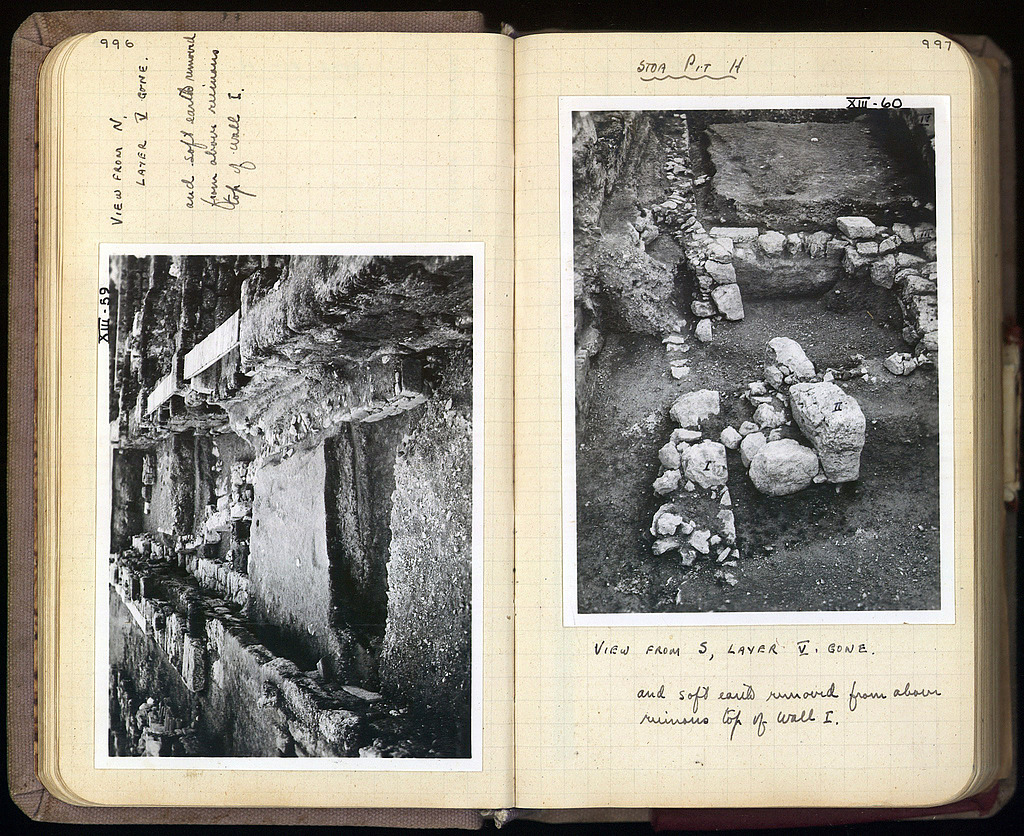 996
VIEW FROM N,
LAYER V GONE.
and soft earth removed
from above ruinous
top of Wall I.
XIII-59
997
STOA PIT H
XIII-60
III
I
II
VIEW FROM S, LAYER V. GONE.
and soft earth removed from above
ruinous top of Wall I.